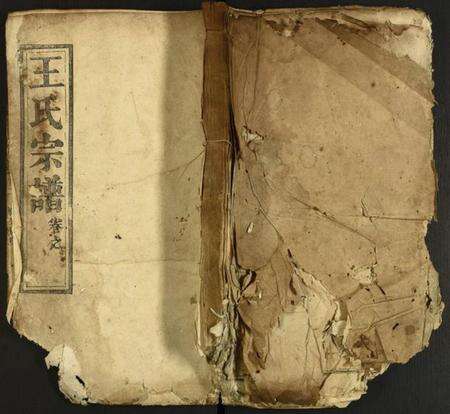 王氏宗譜卷之